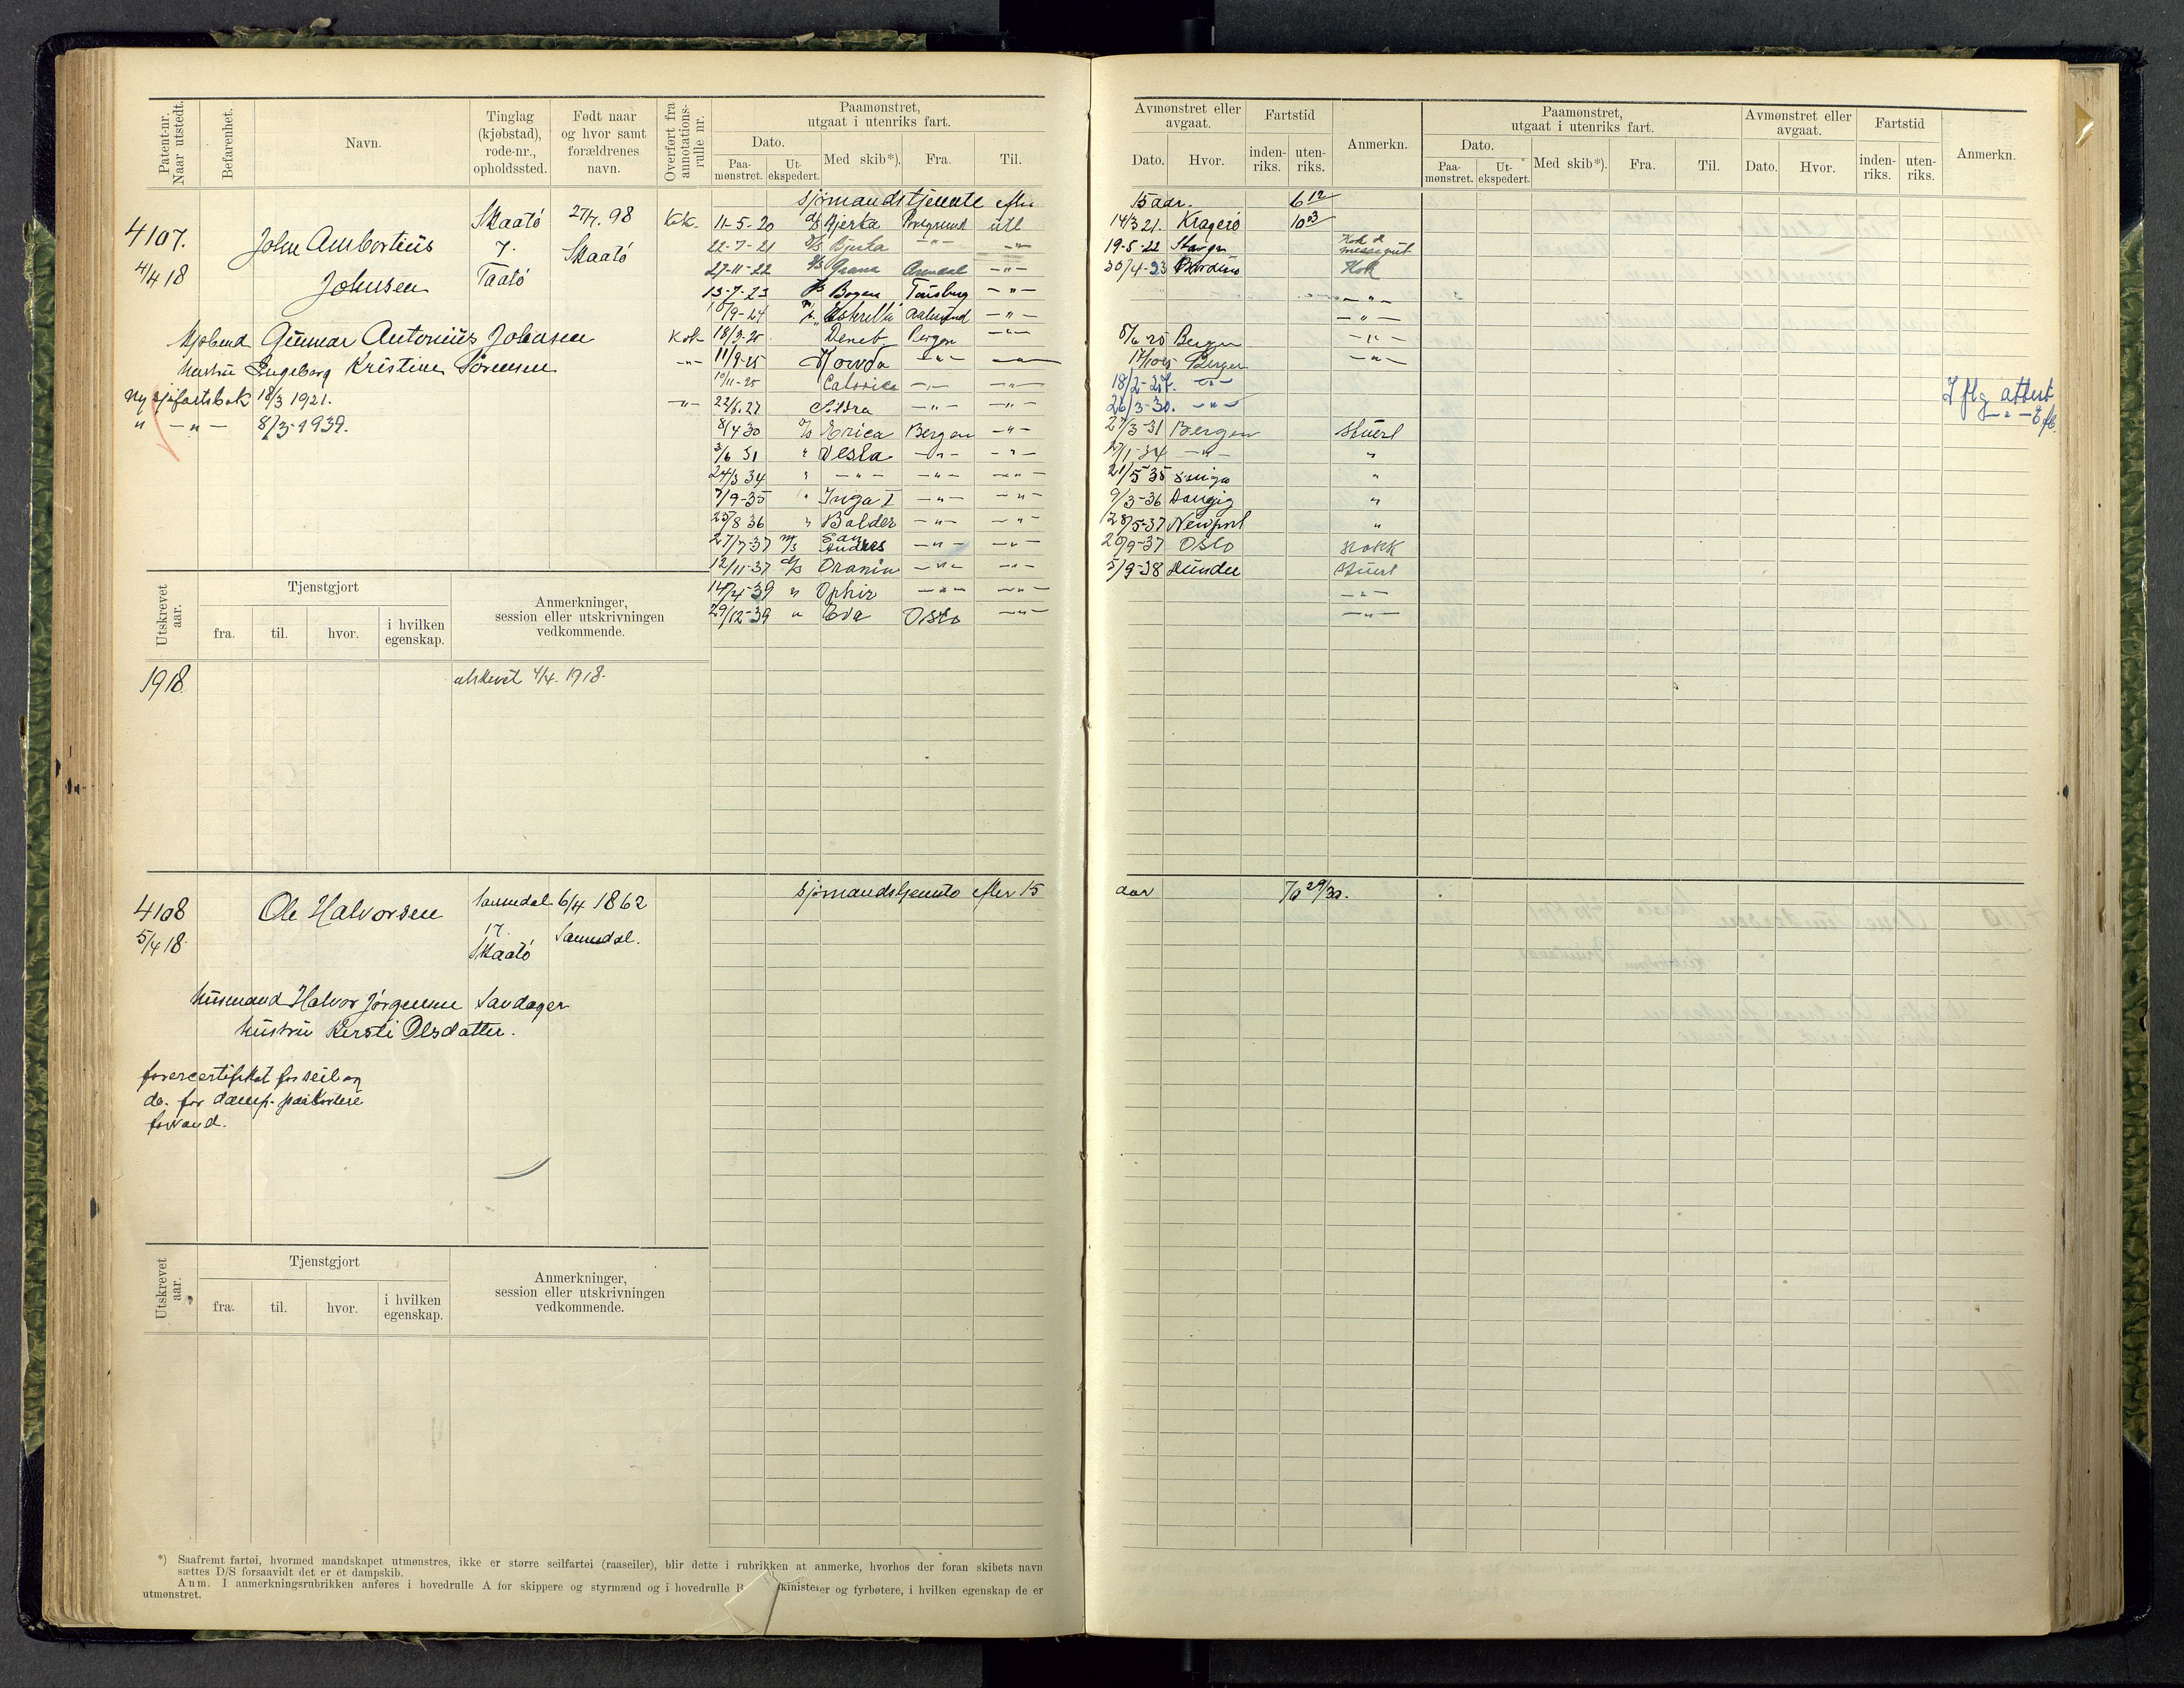 Patent-nr. Naar utstedt.
Befarenhet.
Navn.
Tinglag (kjøbstad), rode-nr., opholdssted.
Født naar og hvor samt forældrenes navn.
Overført fra annotations-rulle nr.
Paamønstret, utgaat i utenriks fart.
Dato.
Paa-mønstret.
Ut-ekspedert.
Med skib*).
Fra.
Til.
Avmønstret eller avgaat.
Dato.
Hvor.
Fartstid
inden-riks.
uten-riks.
Anmerkn.
Paamønstret, utgaat i utenriks fart.
Dato.
Paa-mønstret.
Ut-ekspedert.
Med skib*).
Fra.
Til.
Avmønstret eller avgaat.
Dato.
Hvor.
Fartstid
inden-riks.
uten-riks.
Anmerkn.
sjömandstjeneste efter 15 aar. 6 12
4107. 4/4 18
John Ambortius Johnsen
Skaatö 7. Taatö
27/7. 98 Skaatö
Kok. 11-5-20 d/s Bjerka Porsgrund utl 14/3 21. Kragerö 10 23
22-7-21 d/s Bjerka -"- -"- 19-5-22 Kok & messegut
27-11-22 -"- 30/4-23 Kok
13-7-23 Bogen Tönsberg -"- -"-
10/9-24 -"- -"-
Gunnar Antonius Johnsen Kok 18/3-25 Deneb Bergen -"- 8/6 25 Bergen -"-
hustru Ingeborg Kristine Sörensen -"- 11/9-25 Hovda -"- -"- 17/10 25 Bergen -"-
10/11-25 -"- -"- 18/2-27. -"- Iflg. attest
Ny sjöfartsbok 18/3 1921. -"- 22/6.27 Sildra -"- -"- 26/3-30. -"- -"-
" -"- 8/3-1939. 8/4 30 d/s Erica Bergen -"- 27/3-31 Bergen stuert
3/6 31 " Vesla -"- -"- 27/1-34 -"- "
24/3 34 " -"- -"- -"- 21/5 35 "
7/9-35 " Inga I -"- -"- 9/3-36 Danzig "
25/8 36 " Balder -"- -"- 28/5-37 Newport "
27/7-37 m/s San Andres -"- -"- 20/9-37 Oslo Kokk
12/11-37 d/s Oranin -"- -"- 5/9-38 Dundee Stuert
14/4-39 " Ophir -"- -"- -"-
29/12-39 " Eva Oslo -"- -"-
Utskrevet aar.
Tjenstgjort
fra.
til.
hvor.
i hvilken egenskap.
Anmerkninger, session eller utskrivningen vedkommende.
1918 utskrevet 4/4. 1918.
4108 5/4 18
Ole Halvorsen
Sannidal 17. Skaatö
6/4 1862 Sannidal.
sjömandstjeneste efter 15 aar 70 29/30.
Husmand Halvor Jörgensen Sandager
hustru Kersti Olsdatter.
förercertifikat for seil og
do. for damp. paa kortere
farvand.
Utskrevet aar.
Tjenstgjort
fra.
til.
hvor.
i hvilken egenskap.
Anmerkninger, session eller utskrivningen vedkommende.
*) Saafremt fartøi, hvormed mandskapet utmønstres, ikke er større seilfartøi (raaseiler), blir dette i rubrikken at anmerke, hvorhos der foran skibets navn
sættes D/S forsaavidt det er et dampskib.
Anm. I anmerkningsrubrikken anføres i hovedrulle A for skippere og styrmænd og i hovedrulle B kinister og fyrbøtere, i hvilken egenskap de er
utmønstret.